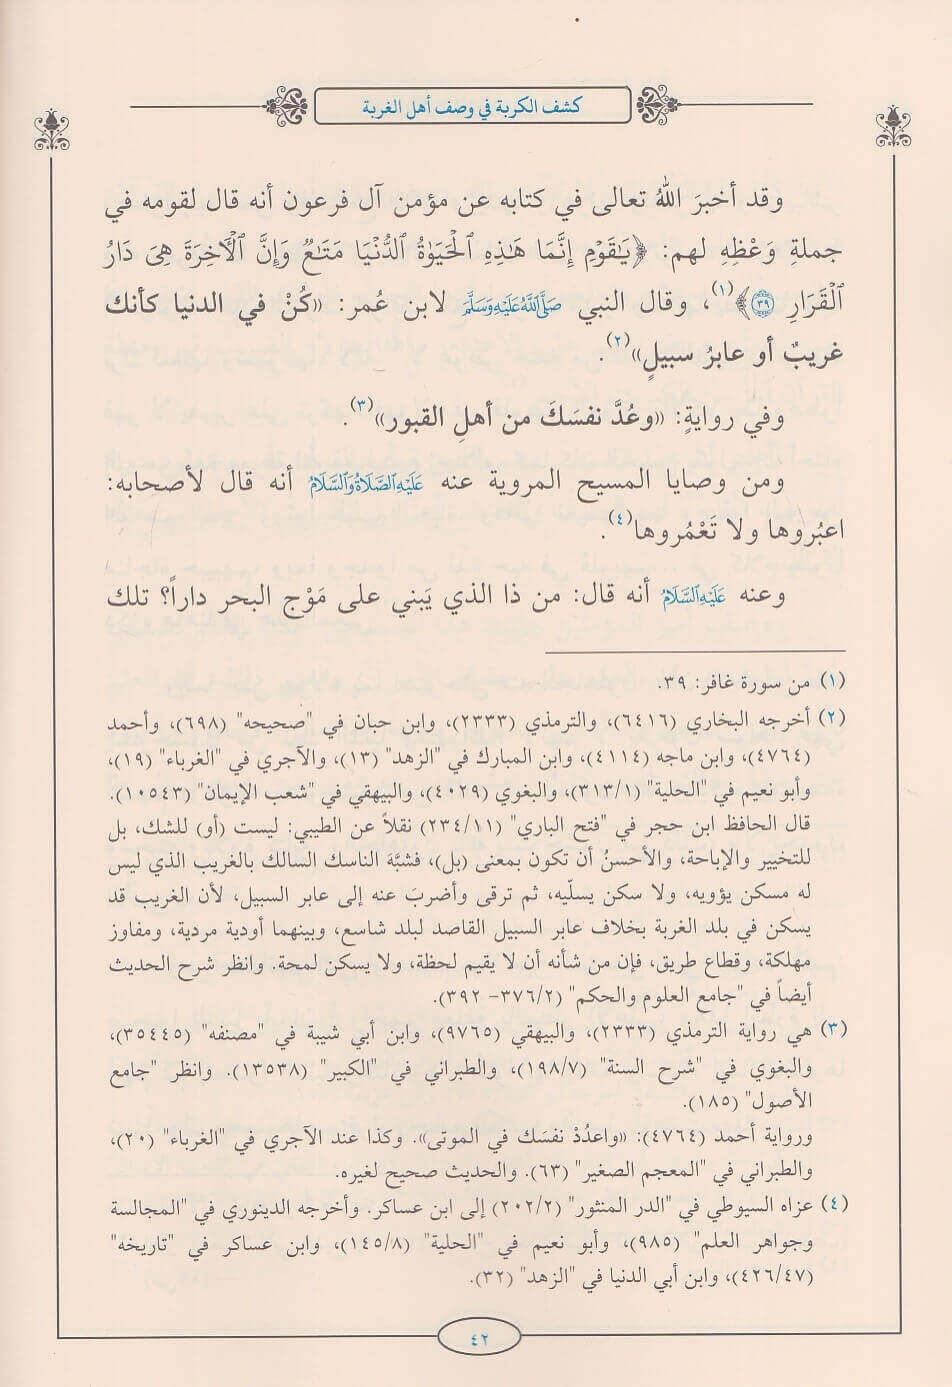 كشف الكربة في وصف أهل الغربة
وقد أخبرَ اللهُ تعالى في كتابه عن مؤمن آل فرعون أنه قال لقومه في
جملةِ وَعْظِهِ لهم: ﴿يَٰقَوْمِ إِنَّمَا هَٰذِهِ ٱلْحَيَوٰةُ ٱلدُّنْيَا مَتَٰعٌ وَإِنَّ ٱلْأَخِرَةَ هِىَ دَارُ
ٱلْقَرَارِ ٣٩﴾(١)، وقال النبي صَلَّى اللَّهُ عَلَيْهِ وَسَلَّمَ لابن عُمر: «كُنْ في الدنيا كأنك
غريبٌ أو عابرُ سبيلٍ»(٢).
وفي روايةٍ: «وعُدَّ نفسَكَ من أهلِ القبور»(٣).
ومن وصايا المسيح المروية عنه عَلَيْهِ الصَّلَاةُ وَالسَّلَامُ أنه قال لأصحابه:
اعبُروها ولا تَعْمُروها(٤).
وعنه عَلَيْهِ السَّلَامُ أنه قال: من ذا الذي يَبني على مَوْج البحر داراً؟ تلك
(١) من سورة غافر: ٣٩.
(٢) أخرجه البخاري (٦٤١٦)، والترمذي (٢٣٣٣)، وابن حبان في "صحيحه" (٦٩٨)، وأحمد
(٤٧٦٤)، وابن ماجه (٤١١٤)، وابن المبارك في "الزهد" (١٣)، والآجري في "الغرباء" (١٩)،
وأبو نعيم في "الحلية" (٣١٣/١)، والبغوي (٤٠٢٩)، والبيهقي في "شعب الإيمان" (١٠٥٤٣).
قال الحافظ ابن حجر في "فتح الباري" (٢٣٤/١١) نقلاً عن الطيبي: ليست (أو) للشك، بل
للتخيير والإباحة، والأحسنُ أن تكون بمعنى (بل)، فشبَّهَ الناسك السالك بالغريب الذي ليس
له مسكن يؤويه، ولا سكن يسلّيه، ثم ترقى وأضربَ عنه إلى عابر السبيل، لأن الغريب قد
يسكن في بلد الغربة بخلاف عابر السبيل القاصد لبلد شاسع، وبينهما أودية مردية، ومفاوز
مهلكة، وقطاع طريق، فإن من شأنه أن لا يقيم لحظة، ولا يسكن لمحة. وانظر شرح الحديث
أيضاً في "جامع العلوم والحكم" (٣٧٦/٢- ٣٩٢).
(٣) هي رواية الترمذي (٢٣٣٣)، والبيهقي (٩٧٦٥)، وابن أبي شيبة في "مصنفه" (٣٥٤٤٥)،
والبغوي في "شرح السنة" (١٩٨/٧)، والطبراني في "الكبير" (١٣٥٣٨). وانظر "جامع
الأصول" (١٨٥).
ورواية أحمد (٤٧٦٤): «واعدُدْ نفسَك في الموتى». وكذا عند الآجري في "الغرباء" (٢٠)،
والطبراني في "المعجم الصغير" (٦٣). والحديث صحيح لغيره.
(٤) عزاه السيوطي في "الدر المنثور" (٢٠٢/٢) إلى ابن عساكر. وأخرجه الدينوري في "المجالسة
وجواهر العلم" (٩٨٥)، وأبو نعيم في "الحلية" (١٤٥/٨)، وابن عساكر في "تاريخه"
(٤٢٦/٤٧)، وابن أبي الدنيا في "الزهد" (٣٢).
٤٢